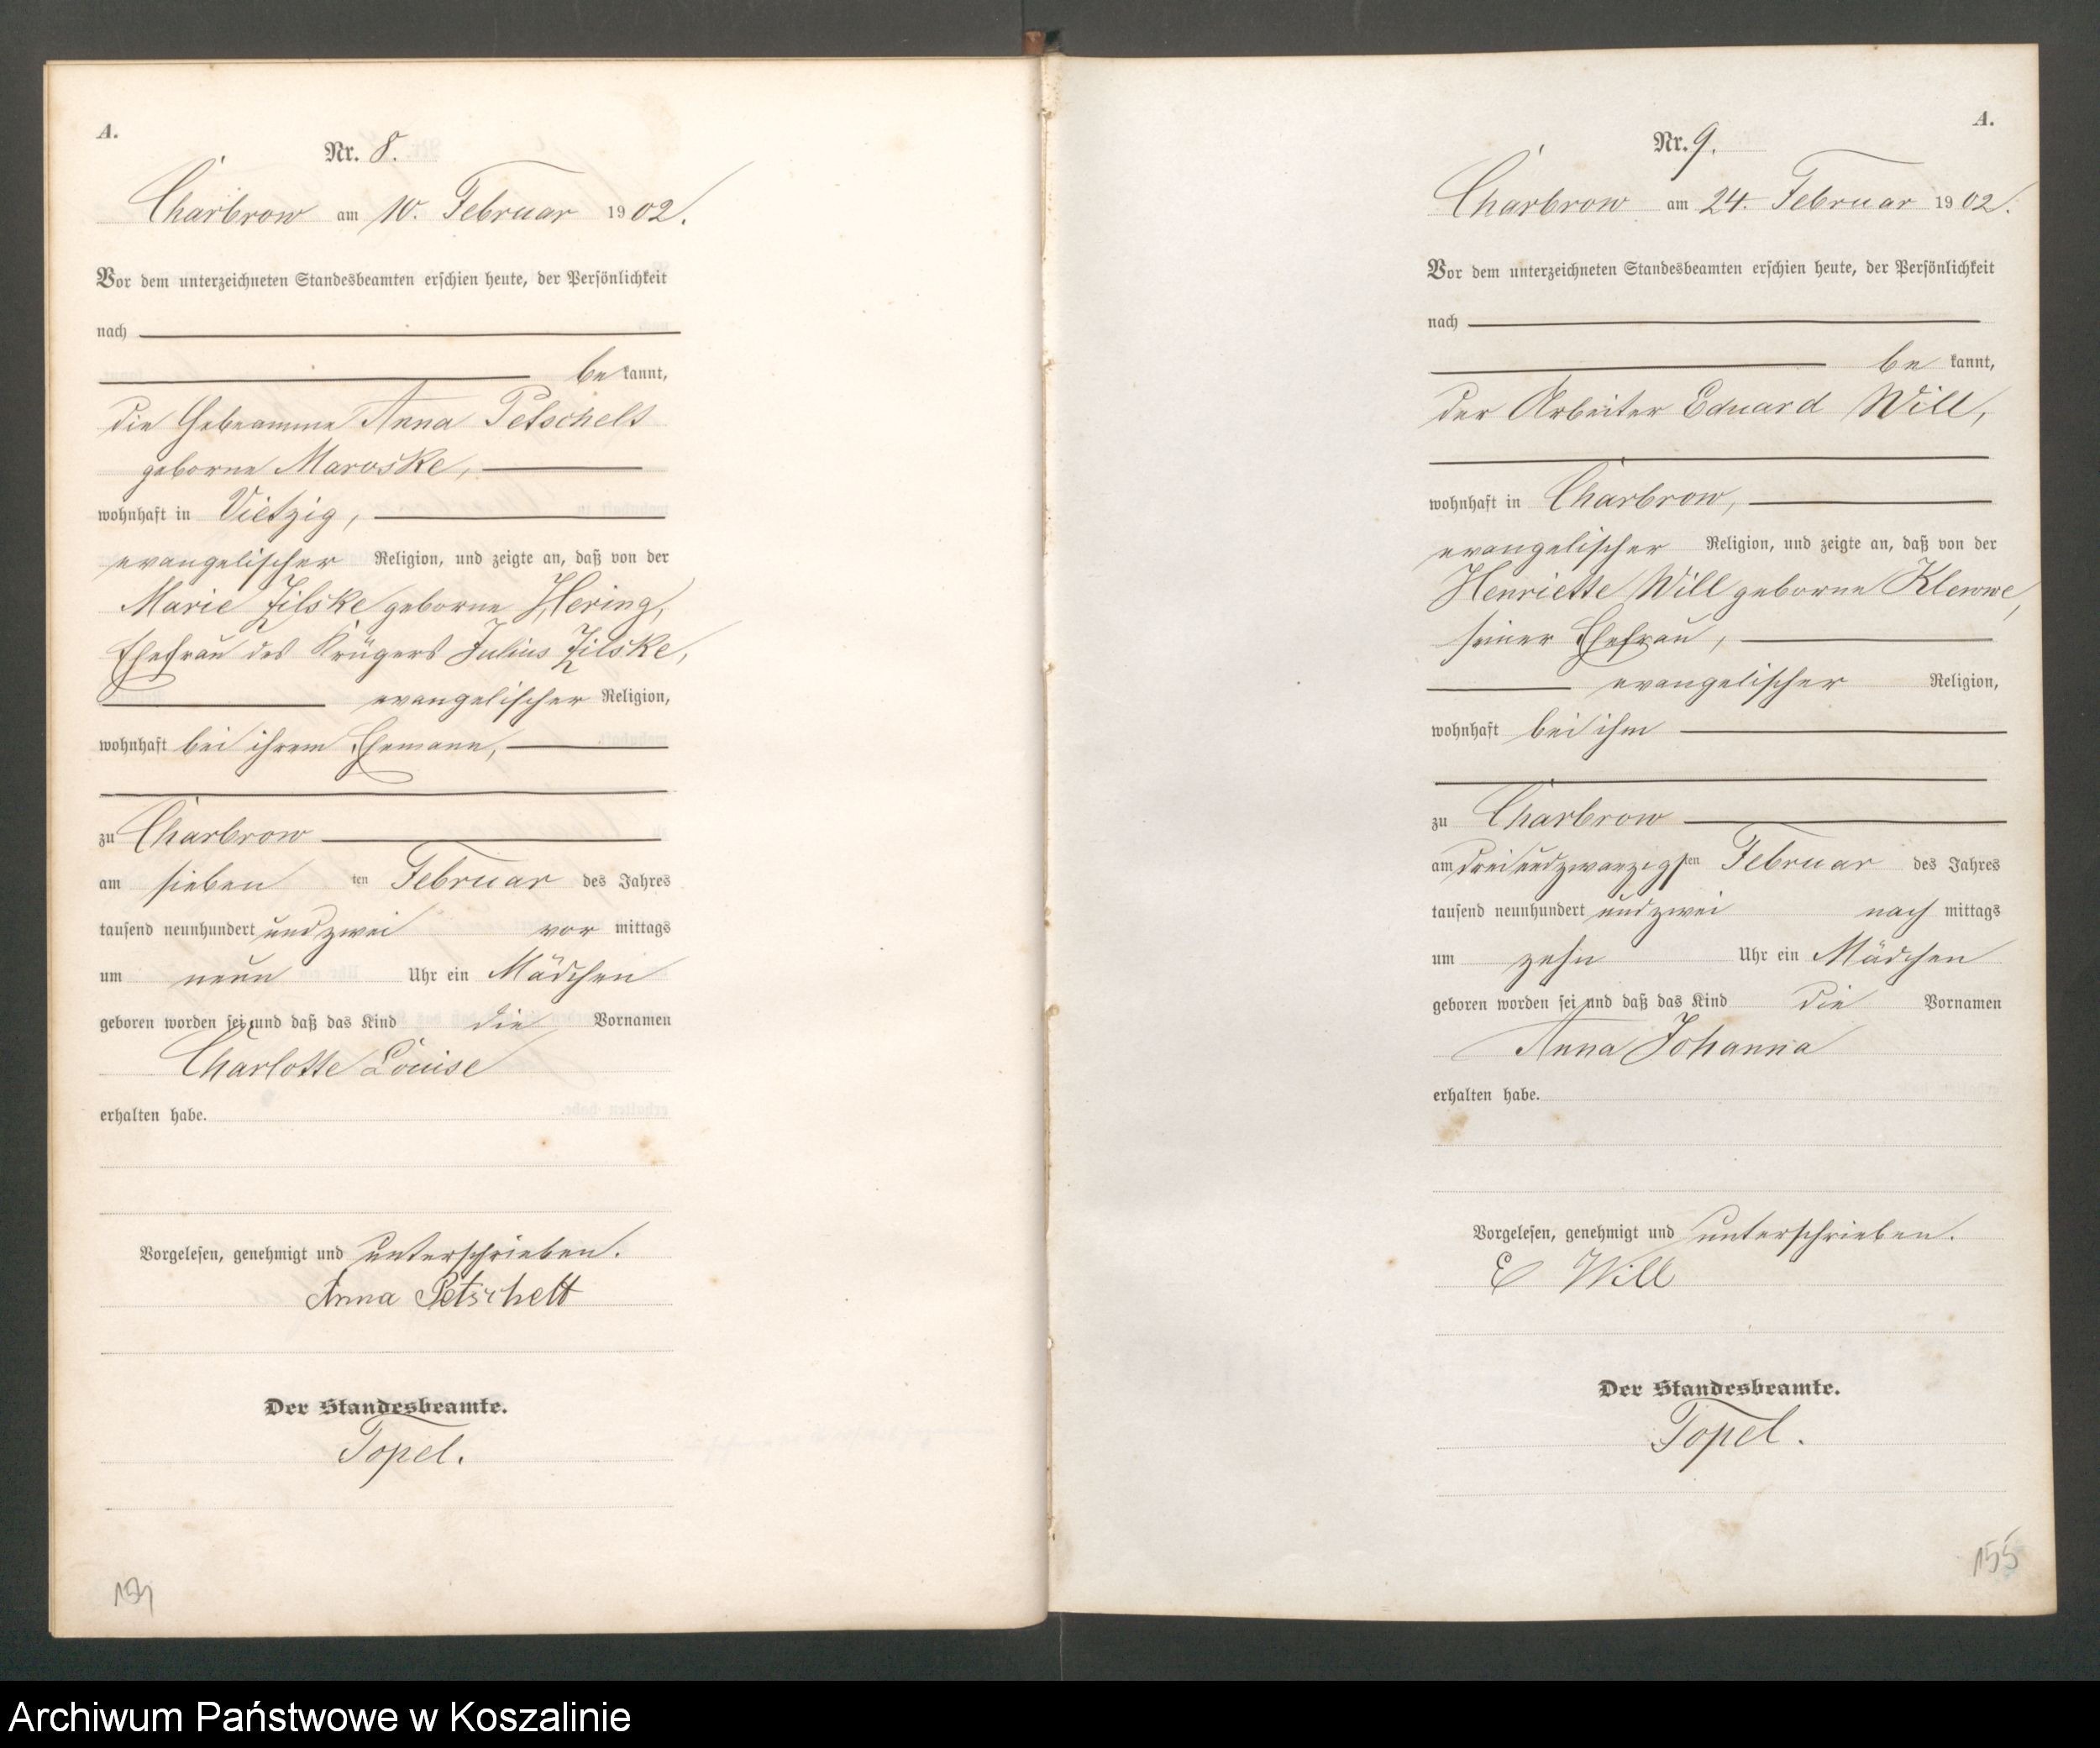 A.
Nr. 8.
Charbrow am 10. Februar 1902.
Vor dem unterzeichneten Standesbeamten erschien heute, der Persönlichkeit
nach
be kannt,
die Hebeamme Anna Petschelt
geborne Maroske,
wohnhaft in Vietzig,
evangelischer Religion, und zeigte an, daß von der
Marie Zilske geborne Hering,
Ehefrau des Krügers Julius Zilske,
evangelischer Religion,
wohnhaft bei ihrem Ehemann,
zu Charbrow
am sieben ten Februar des Jahres
tausend neunhundert und zwei vor mittags
um neun Uhr ein Mädchen
geboren worden sei und daß das Kind die Vornamen
Charlotte Louise
erhalten habe.
Vorgelesen, genehmigt und unterschrieben.
Anna Petschelt
Der Standesbeamte.
Topel.
A.
Nr. 9.
Charbrow am 24. Februar 1902.
Vor dem unterzeichneten Standesbeamten erschien heute, der Persönlichkeit
nach
be kannt,
der Arbeiter Eduard Will,
wohnhaft in Charbrow,
evangelischer Religion, und zeigte an, daß von der
Henriette Will geborne Klewwe,
seiner Ehefrau,
evangelischer Religion,
wohnhaft bei ihm
zu Charbrow
am dreiundzwanzigsten Februar des Jahres
tausend neunhundert und zwei nach mittags
um zehn Uhr ein Mädchen
geboren worden sei und daß das Kind die Vornamen
Anna Johanna
erhalten habe.
Vorgelesen, genehmigt und unterschrieben.
E Will
Der Standesbeamte.
Topel.
155
Archiwum Państwowe w Koszalinie